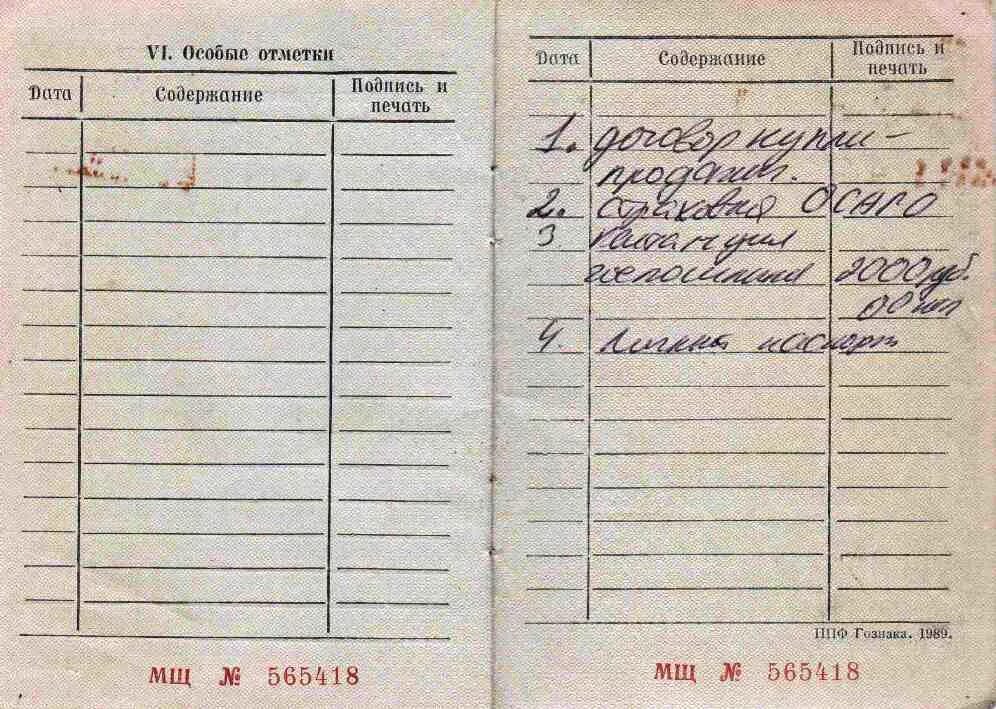 VI. Особые отметки
Дата Содержание Подпись и печать
МЩ № 565418
Дата Содержание Подпись и печать
1. договор купли-
продажи.
2. страховка ОСАГО
3 квитанция
госпошлина 2000 руб.
00 коп
4. Личный паспорт
ППФ Гознака. 1989.
МЩ № 565418